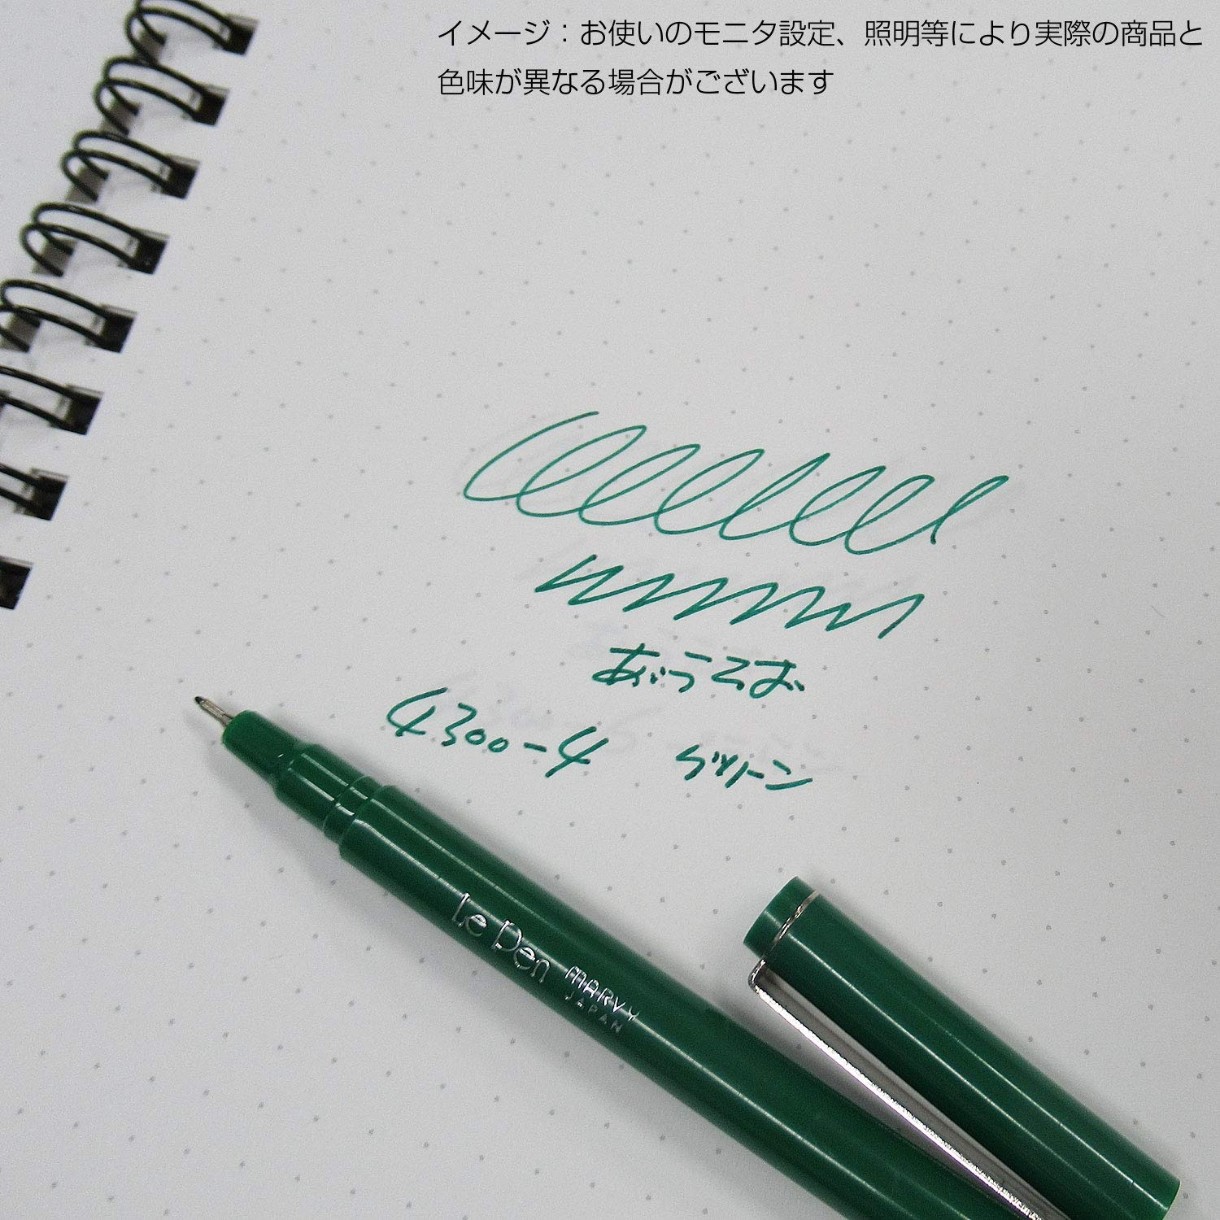 イメージ：お使いのモニタ設定、照明等により実際の商品と
色味が異なる場合がございます
あいうえお
4300-4 グリーン
Le Pen MARVY
JAPAN